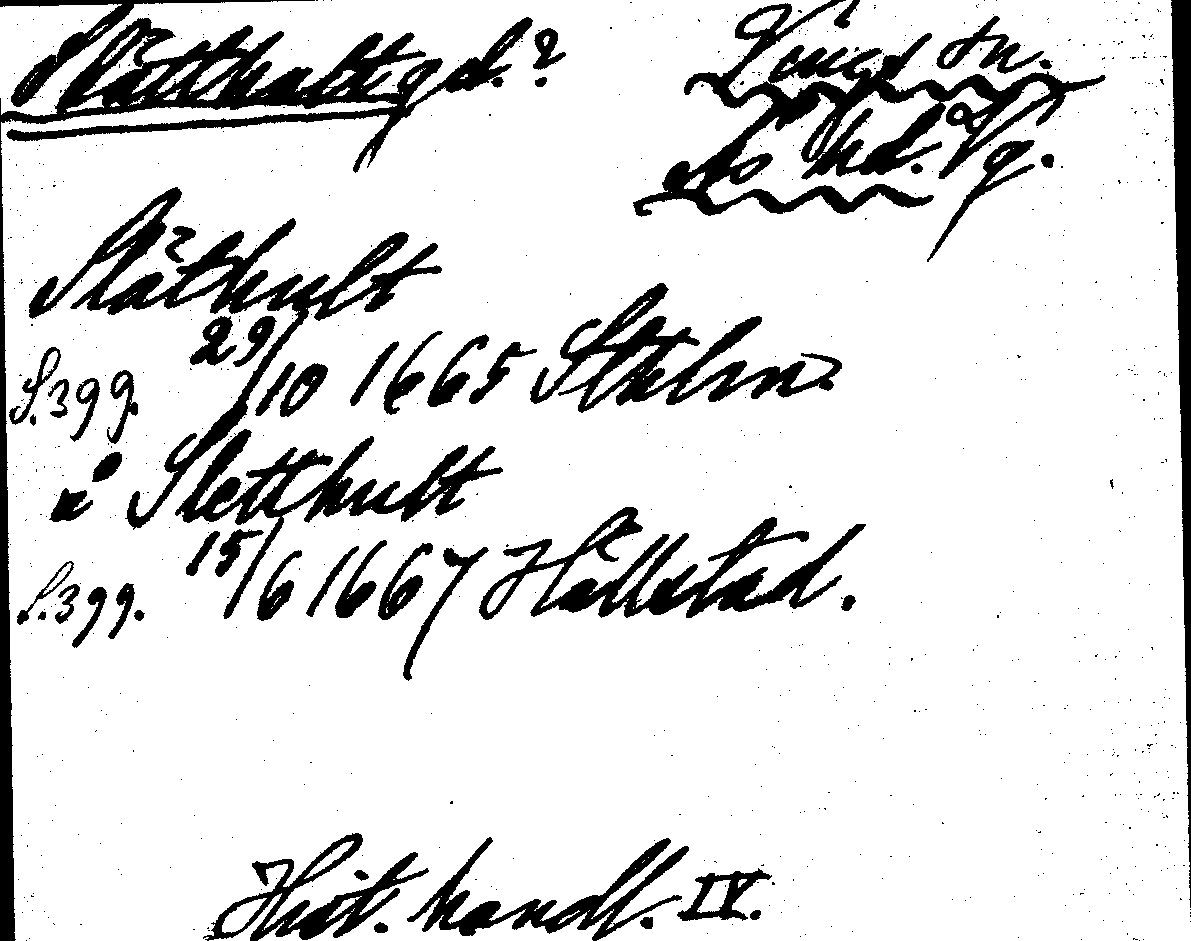 Slätthult gd.?
Längs sn.
Ås hd. Vg.
Släthult
S. 399. 29/10 1665 Sthlm.
å Sletthult
S. 399. 15/6 1667 Hällstad.
Hist. handl. IV.